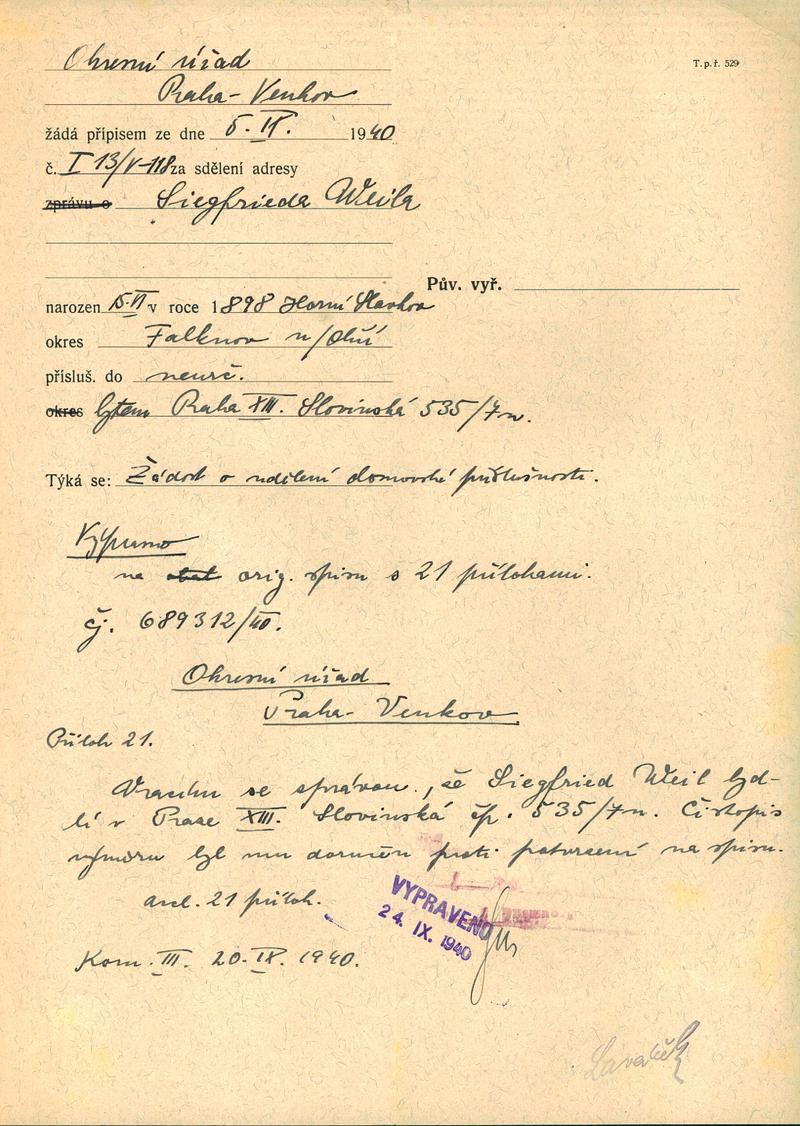 Okresní úřad
T. p. ř. 529
Praha-Venkov
žádá přípisem ze dne 5. IX. 1940
č. I 13/V-118 za sdělení adresy
zprávu o Siegfrieda Weila
Pův. vyř.
narozen 15. VI v roce 1898 Horní Slavkov
okres Falknov n/Ohří
přísluš. do neurč.
okres bytem Praha XIII. Slovinská 535/7n.
Týká se: Žádost o udělení domovské příslušnosti.
Výpravno
na orig. spisu s 21 přílohami.
čj. 689312/40.
Okresní úřad
Praha-Venkov
Příloh 21.
Vracím se zprávou, že Siegfried Weil byd-
lí v Praze XIII. Slovinská čp. 535/7n. Čistopis
výměru byl mu doručen proti potvrzení na spisu.
21 příloh.
VYPRAVENO
24. IX. 1940
Kom. III. 20. IX. 1940.